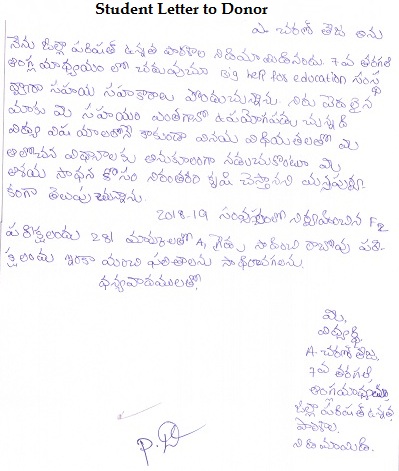 Student Letter to Donor
ఎ చరణ్ తేజ అను
నేను జిల్లా పరిషత్ ఉన్నత పాఠశాల నిడమానూరునందు 7వ తరగతి
ఆంగ్ల మాధ్యమం లో చదువుచూ Big help for education సంస్థ
ద్వారా సహాయ సహకారాలు పొందుచున్నాను.
మాకు మీ సహాయం ఎంతగానో ఉపయోగపడు చున్నది
విద్యా విషయాలలోనే కాకుండా వినయ విధేయతలతో మీ
ఆలోచన విధానాలకు అనుకూలంగా నడుచుకొంటూ మీ
ఆశయ సాధన కోసం నిరంతరం కృషి చేస్తానని మనస్ఫూర్తి
కరంగా తెలుపుచున్నాను.
2018-19 సంవత్సరంలో నిర్వహించిన F2
పరీక్షలందు 281 మార్కులతో A1 గ్రేడు సాధించి రాబోవు పరీ-
క్షలందు ఇంకా మంచి ఫలితాలను సాధించగలను.
ధన్యవాదములతో,
మీ,
విద్యార్థి,
A. చరణ్ తేజ,
7వ తరగతి,
ఆంగ్లమాధ్యమం,
జిల్లా పరిషత్ ఉన్నత
పాఠశాల,